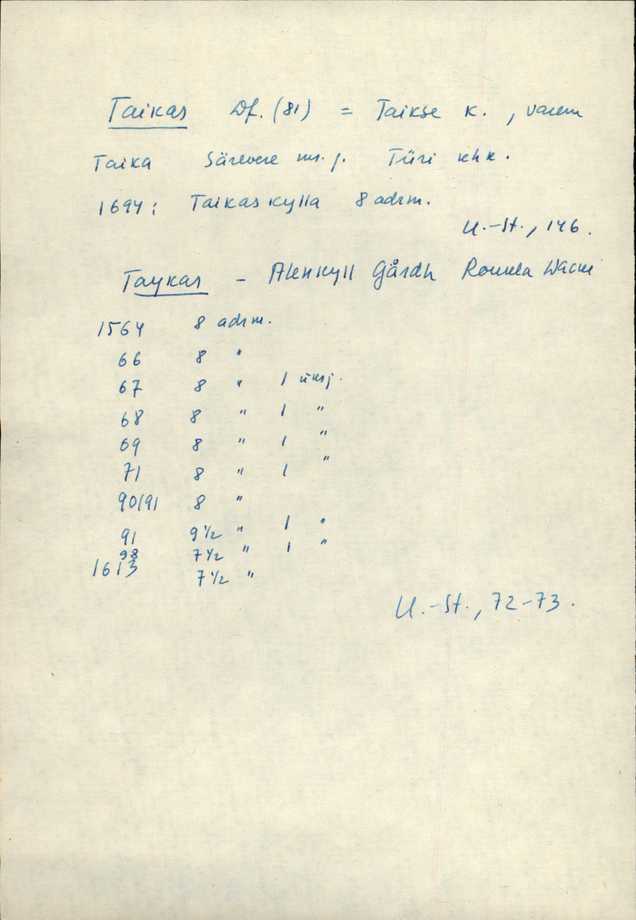 Taikas Df. (81) = Taikse k., varem
Taika Särevere ms. j. Türi khk.
1694: Taikaskylla 8 adrm.
U.-St., 146.
Taykas - Alenkyll Gårdh
1564 8 adrm.
66 8 "
67 8 " 1 üksj.
68 8 " 1 "
69 8 " 1 "
71 8 " 1 "
90/91 8 "
91 9 1/2 " 1 "
98 7 1/2 " 1 "
1613 7 1/2 "
U.-St., 72-73.